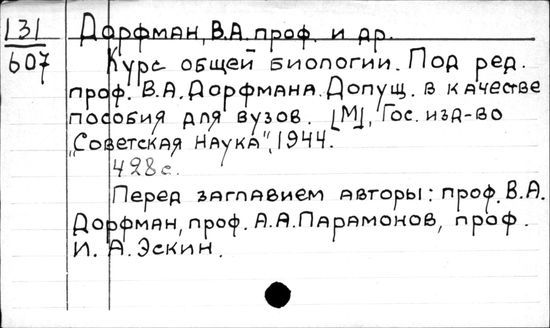 131
607
Дорфман, В.А. проф. и др.
Курс общей биологии. Под ред.
проф. В.А. Дорфмана. Допущ. в качестве
пособия для вузов. [М], Гос. изд-во
„Советская наука", 1944.
428 с.
Перед заглавием авторы: проф. В.А.
Дорфман, проф. А.А. Парамонов, проф.
И. А. Эскин.